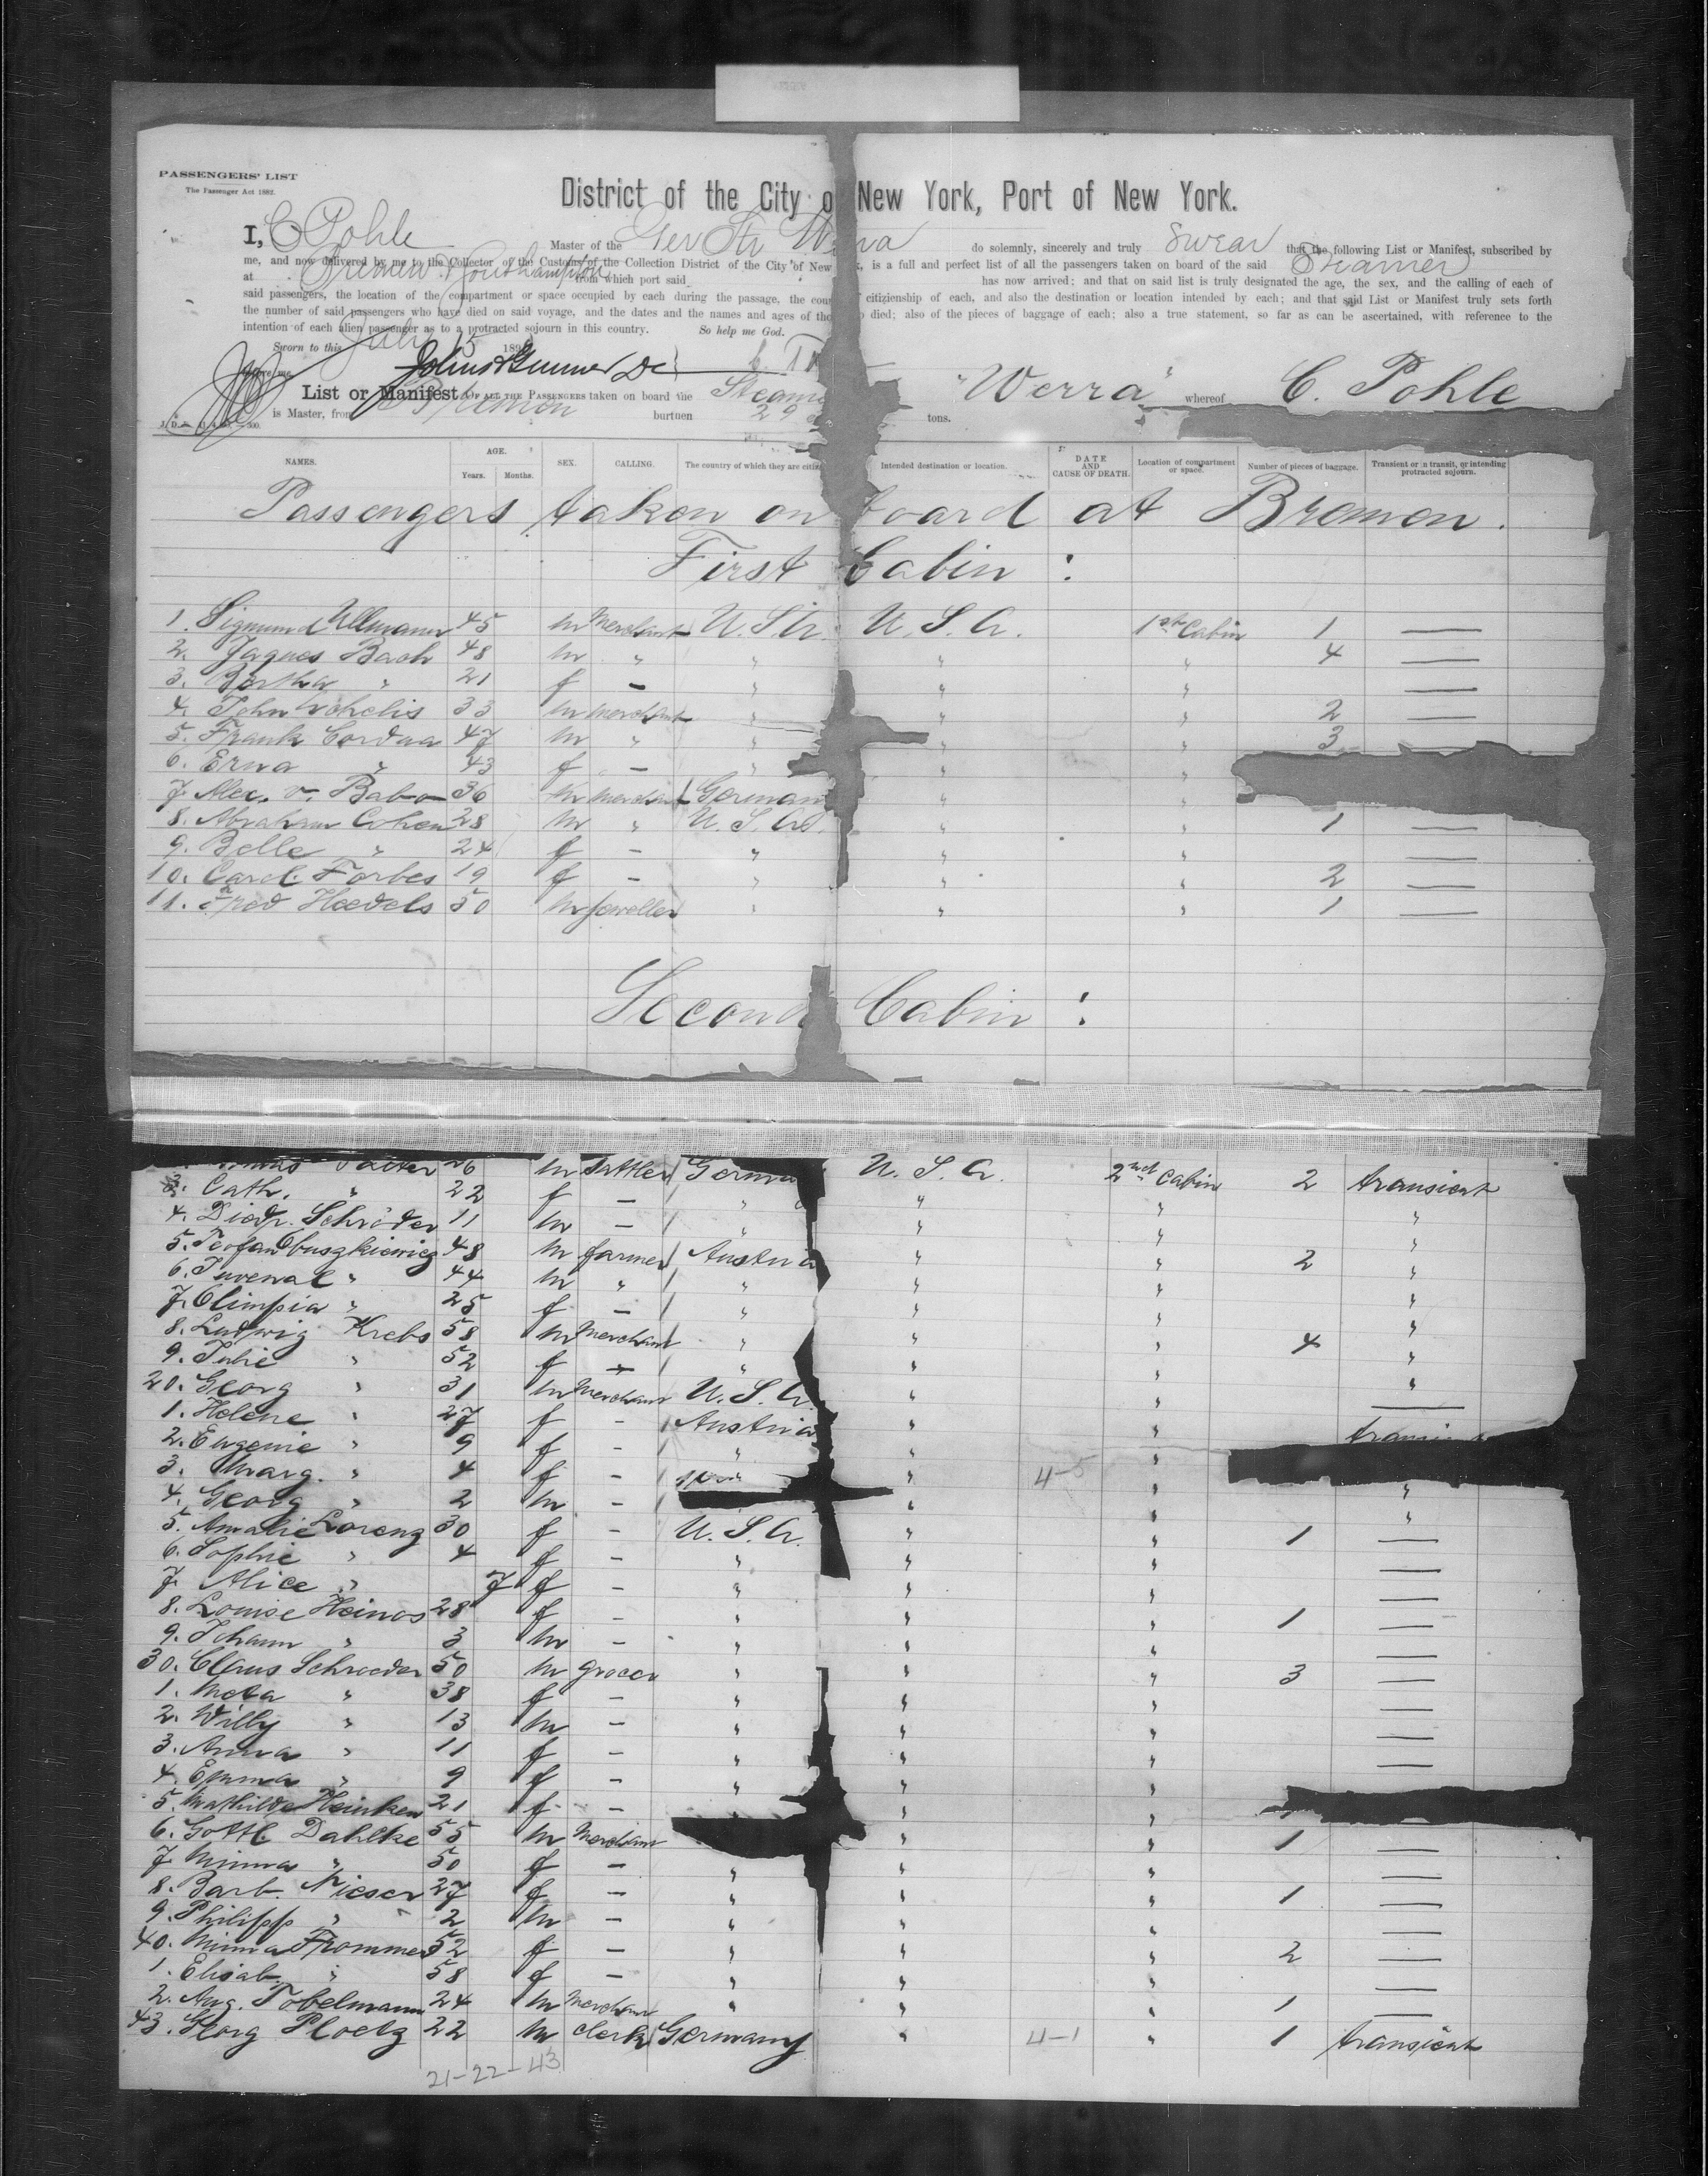 PASSENGERS' LIST
The Passenger Act 1882.
District of the City o New York, Port of New York.
I, C Pohle Master of the Ger Str W rra do solemnly, sincerely and truly swear that the following List or Manifest, subscribed by
me, and now delivered by me to the Collector of the Customs of the Collection District of the City of New , is a full and perfect list of all the passengers taken on board of the said Steamer
at Bremen & Southampton from which port said has now arrived; and that on said list is truly designated the age, the sex, and the calling of each of
said passengers, the location of the compartment or space occupied by each during the passage, the cou citizienship of each, and also the destination or location intended by each; and that said List or Manifest truly sets forth
the number of said passengers who have died on said voyage, and the dates and the names and ages of tho died; also of the pieces of baggage of each; also a true statement, so far as can be ascertained, with reference to the
intention of each alien passenger as to a protracted sojourn in this country. So help me God.
Sworn to this July 15 189
List or Manifest OF ALL THE PASSENGERS taken on board the Steam "Werra" whereof C. Pohle
is Master, from Bremen burtuen 29 tons.
NAMES. AGE. Years. Months. SEX. CALLING. The country of which they are citiz Intended destination or location. DATE AND CAUSE OF DEATH. Location of compartment or space. Number of pieces of baggage. Transient or in transit, or intending protracted sojourn.
Passengers taken on board at Bremen.
First Cabin :
1. Sigmund Ullmann 45 m Merchant U.S.A. U.S.A. 1st Cabin 1 —
2. Jaques Bach 48 m " " " " 4 —
3. Bertha " 21 f — " " " —
4. John 33 m Merchant " " " 2 —
5. Frank Cordua 47 m " " " " 3
6. Erna " 43 f — " " "
7. Alex. v. Babo 36 m Merchant German " "
8. Abraham Cohen 28 m " U.S.A. " " 1 —
9. Belle " 24 f — " " " —
10. Carol. Forbes 19 f — " " " 2 —
11. Fred Hoedels 50 m Jeweller " " " 1 —
Second Cabin :
26 m Sattler Germa U.S.A. 2nd Cabin 2 transient
3. Cath. " 22 f — " " " "
4. Diedr. Schröder 11 m — " " " "
5. Teofan Obuszkiewicz 48 m farmer Austria " " 2 "
6. Juvenal " 44 m " " " " "
7. Olimpia " 25 f — " " " "
8. Ludwig Krebs 58 m Merchant " " " 4 "
9. Julie " 52 f — " " " "
20. Georg " 31 m Merchant U.S.A. " " —
1. Helene " 27 f — Austria " "
2. Eugenie " 9 f — " " "
3. Marg. " 4 f — " 4-5 " "
4. Georg " 2 m — " " "
5. Amalie Lorenz 30 f — U.S.A. " " 1 —
6. Sophie " 4 f — " " " —
7. Alice " 7 f — " " " —
8. Louise Heinos 28 f — " " " 1 —
9. Johann " 3 m — " " " —
30. Claus Schroeder 50 m grocer " " " 3 —
1. Meta " 38 f — " " " —
2. Willy " 13 m — " " " —
3. Anna " 11 f — " " " —
4. Emma " 9 f — " " "
5. Mathilde Heinken 21 f — " "
6. Gottl. Dahlke 55 m Merchant " " 1 —
7. Minna " 50 f — " " " —
8. Barb. Nieser 27 f — " " " 1 —
9. Philipp " 2 m — " " " —
40. Minna Frommer 52 f — " " " 2 —
1. Elisab. " 58 f — " " " —
2. Aug. Tobelmann 24 m Merchant " " " 1 —
43. Georg Ploetz 22 m clerk Germany " 4-1 " 1 transient
21-22-43